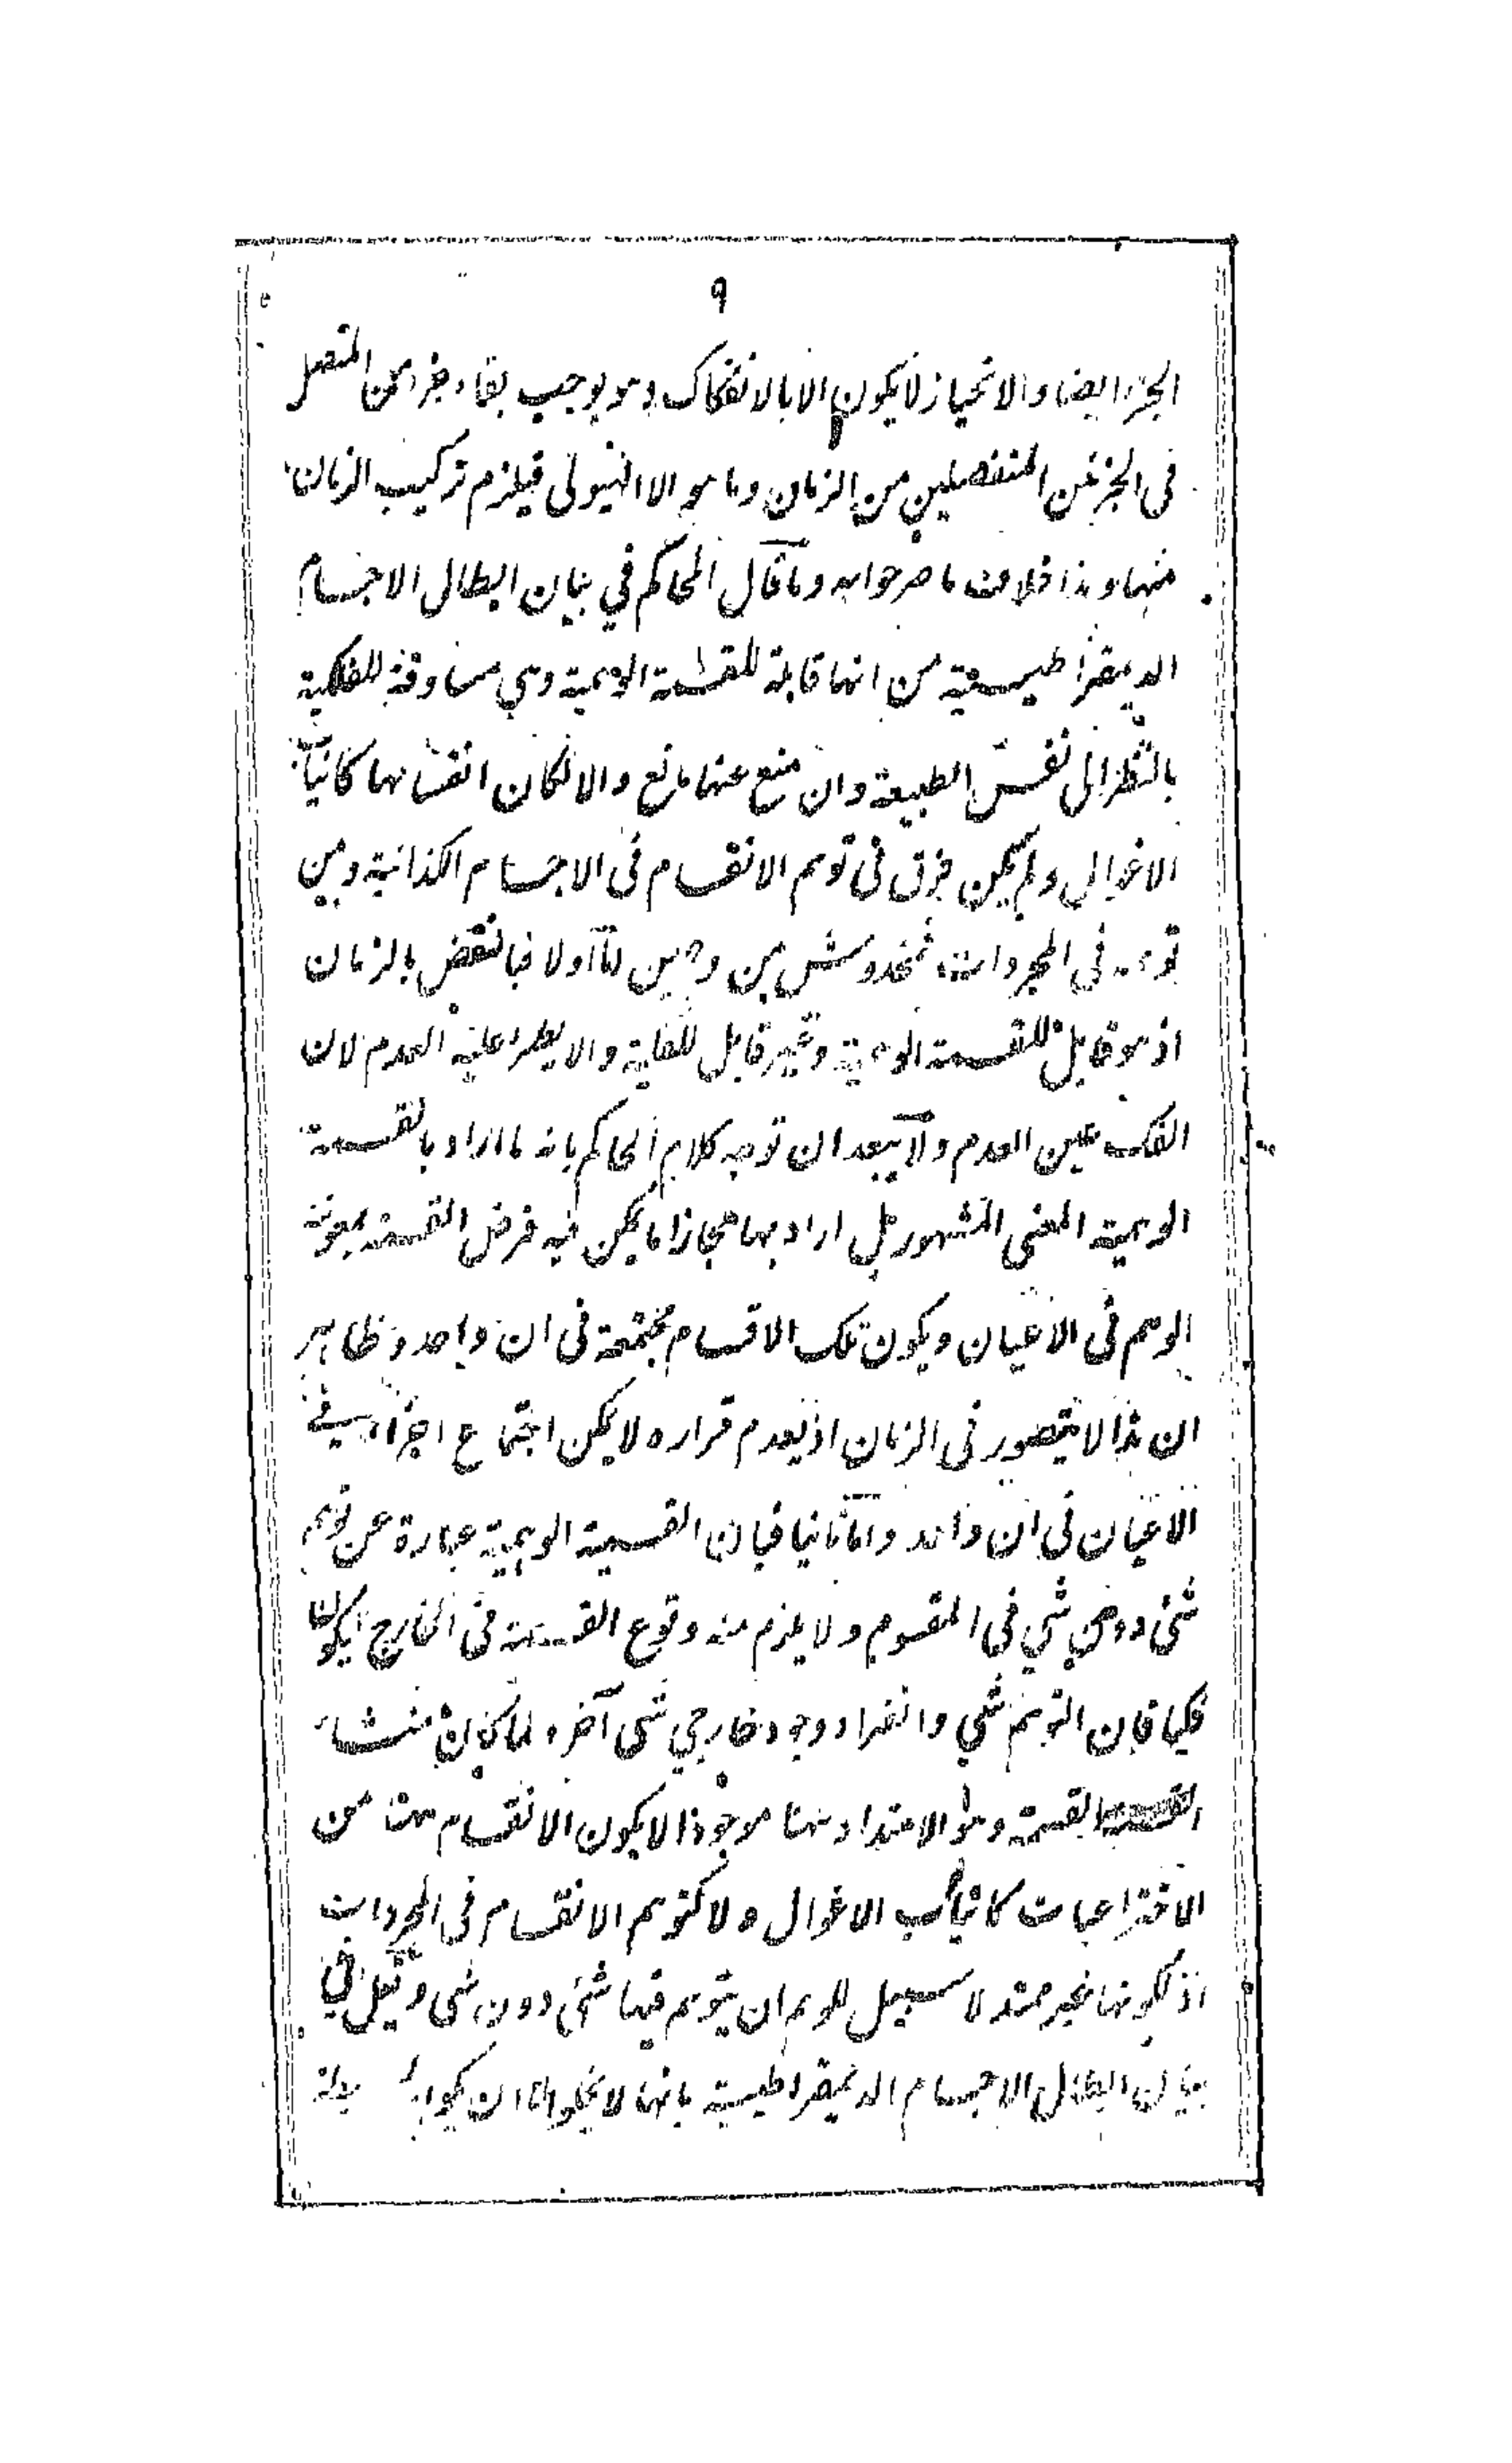 ٩
الجزء ايضا والانحياز لا يكون الا بالانفكاك وهو يوجب بقاء جزء من المتصل
فى الجزئين المنفصلين من الزمان وما هو الا الهيولى فيلزم تركيب الزمان
منها وهذا خلاف ما صرحوا به وما قال المحاكم في بيان ابطال الاجسام
الديمقراطيسية من انها قابلة للقسمة الوهمية وهي مساوقة للفكية
بالنظر الى نفس الطبيعة وان منع عنها مانع والا لكان انقسامها كانياب
الاغوال ولم يكن فرق فى توهم الانقسام فى الاجسام الكذائية وبين
توهمه فى المجردات فمخدوش من وجهين اما اولا فبالنقض بالزمان
اذ هو قابل للقسمة الوهمية وغير قابل للفكية والا يطرأ عليه العدم لان
الفك عين العدم ولا يبعد ان توجه كلام المحاكم بانه ما اراد بالقسمة
الوهمية المعنى المشهور بل اراد بها مجازا ما يمكن فيه فرض القسمة بمعونة
الوهم فى الاعيان ويكون تلك الاقسام مجتمعة فى ان واحد وظاهر
ان هذا لا يتصور فى الزمان اذ لعدم قراره لا يمكن اجتماع اجزائه في
الاعيان فى ان واحد واما ثانيا فبان القسمة الوهمية عبارة عن توهم
شئ دون شئ فى المقسوم ولا يلزم منه وقوع القسمة فى الخارج ليكون
فكيا فان التوهم شئ وانفراد وجود خارجي شئ آخر ولما كان منشاء
القسمة وهو الامتداد منها موجودا لا يكون الانقسام هنا من
الاختراعيات كانياب الاغوال ولا كتوهم الانقسام فى المجردات
اذ لكونها غير ممتد لا سبيل للوهم ان يتوهم فيها شئ دون شئ وقيل في
بيان ابطال الاجسام الديمقراطيسية بانها لا يخلو اما ان يكون